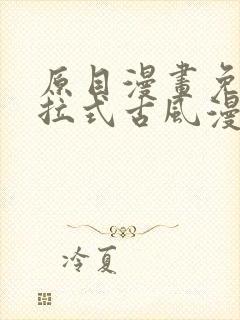 原目漫畫免
拉式古風漫
冷夏